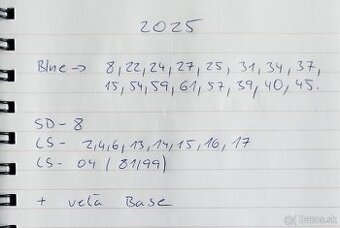 2025
Blue -> 8, 22, 24, 27, 25, 31, 34, 37,
15, 54, 59, 61, 57, 39, 40, 45.
SD - 8
CS - 2, 4, 6, 13, 14, 15, 16, 17
CS - 04 / 81/99)
+ veľa Base
Bazar.sk